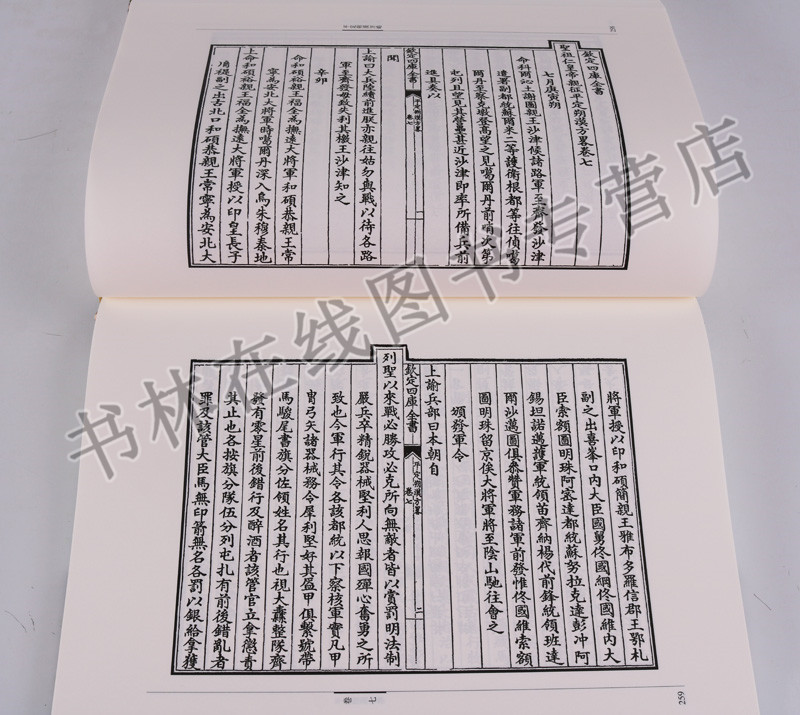 欽定四庫全書
聖祖仁皇帝親征平定朔漠方畧卷七
七月庚寅朔
命科爾沁土謝圖親王沙津候諸路軍至齊發沙津
遣署副都統蘇爾來二等護衛根都等往偵噶
爾丹至察克墩登高望之見噶爾丹前哨次第
屯列且望見其營壘甚近沙津即率所備兵前
進具奏以
欽定四庫全書
平定朔漠方畧
卷七
聞
上諭曰大兵陸續前進朕亦親往姑勿與戰以待各路
軍至齊發毋致失利其檄王沙津知之
辛卯
命和碩裕親王福全為撫遠大將軍和碩恭親王常
寧為安北大將軍時噶爾丹深入烏朱穆秦地
上命和碩裕親王福全為撫遠大將軍授以印皇長子
允禔副之出古北口和碩恭親王常寧為安北大
將軍授以印和碩簡親王雅布多羅信郡王鄂札
副之出喜峯口內大臣國舅佟國綱佟國維內大
臣索額圖明珠阿密達都統蘇努拉克達彭冲阿
錫坦諾邁護軍統領苗齊納楊代前鋒統領班達
爾沙邁圖俱叅贊軍務諸軍前發惟佟國維索額
圖明珠留京俟大將軍將至陰山馳往會之
頒發軍令
上諭兵部曰本朝自
欽定四庫全書
平定朔漠方畧
卷七
二
列聖以來戰必勝攻必克所向無敵者皆以賞罰明法制
嚴兵卒精銳器械堅利人思報國殫心奮勇之所
致也今軍行其令各該都統以下察核軍實凡甲
胄弓矢諸器械務令犀利堅好其盔甲俱繫號帶
馬駿尾書旗分佐領姓名其行也視大纛整隊齊
發有零星前後錯行及醉酒者該管官立拿懲責
其止也各按旗分隊伍分列屯扎有前後錯亂者
罪及該管大臣馬無印箭無名各罰以銀給拿獲
卷七
259
书林在线图书专营店